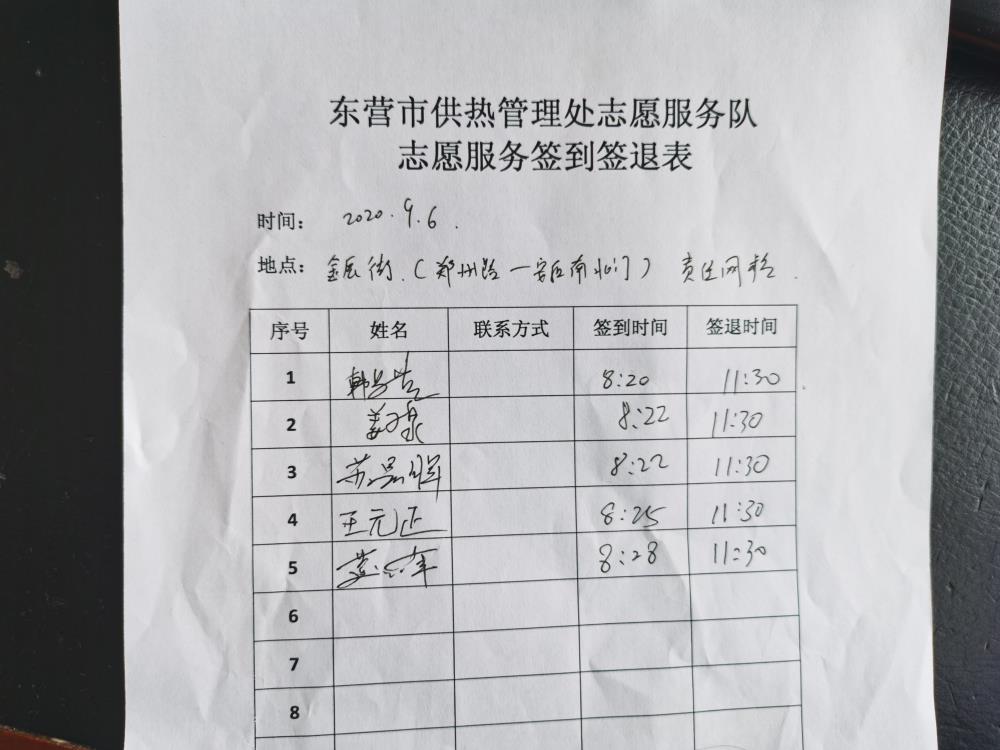 东营市供热管理处志愿服务队
志愿服务签到签退表
时间: 2020.9.6.
地点: 金辰街.(郑州路一安居南北门) 责任网格.
序号 姓名 联系方式 签到时间 签退时间
1 韩 8:20 11:30
2 姜 8:22 11:30
3 苏 8:22 11:30
4 王元正 8:25 11:30
5 8:28 11:30
6
7
8